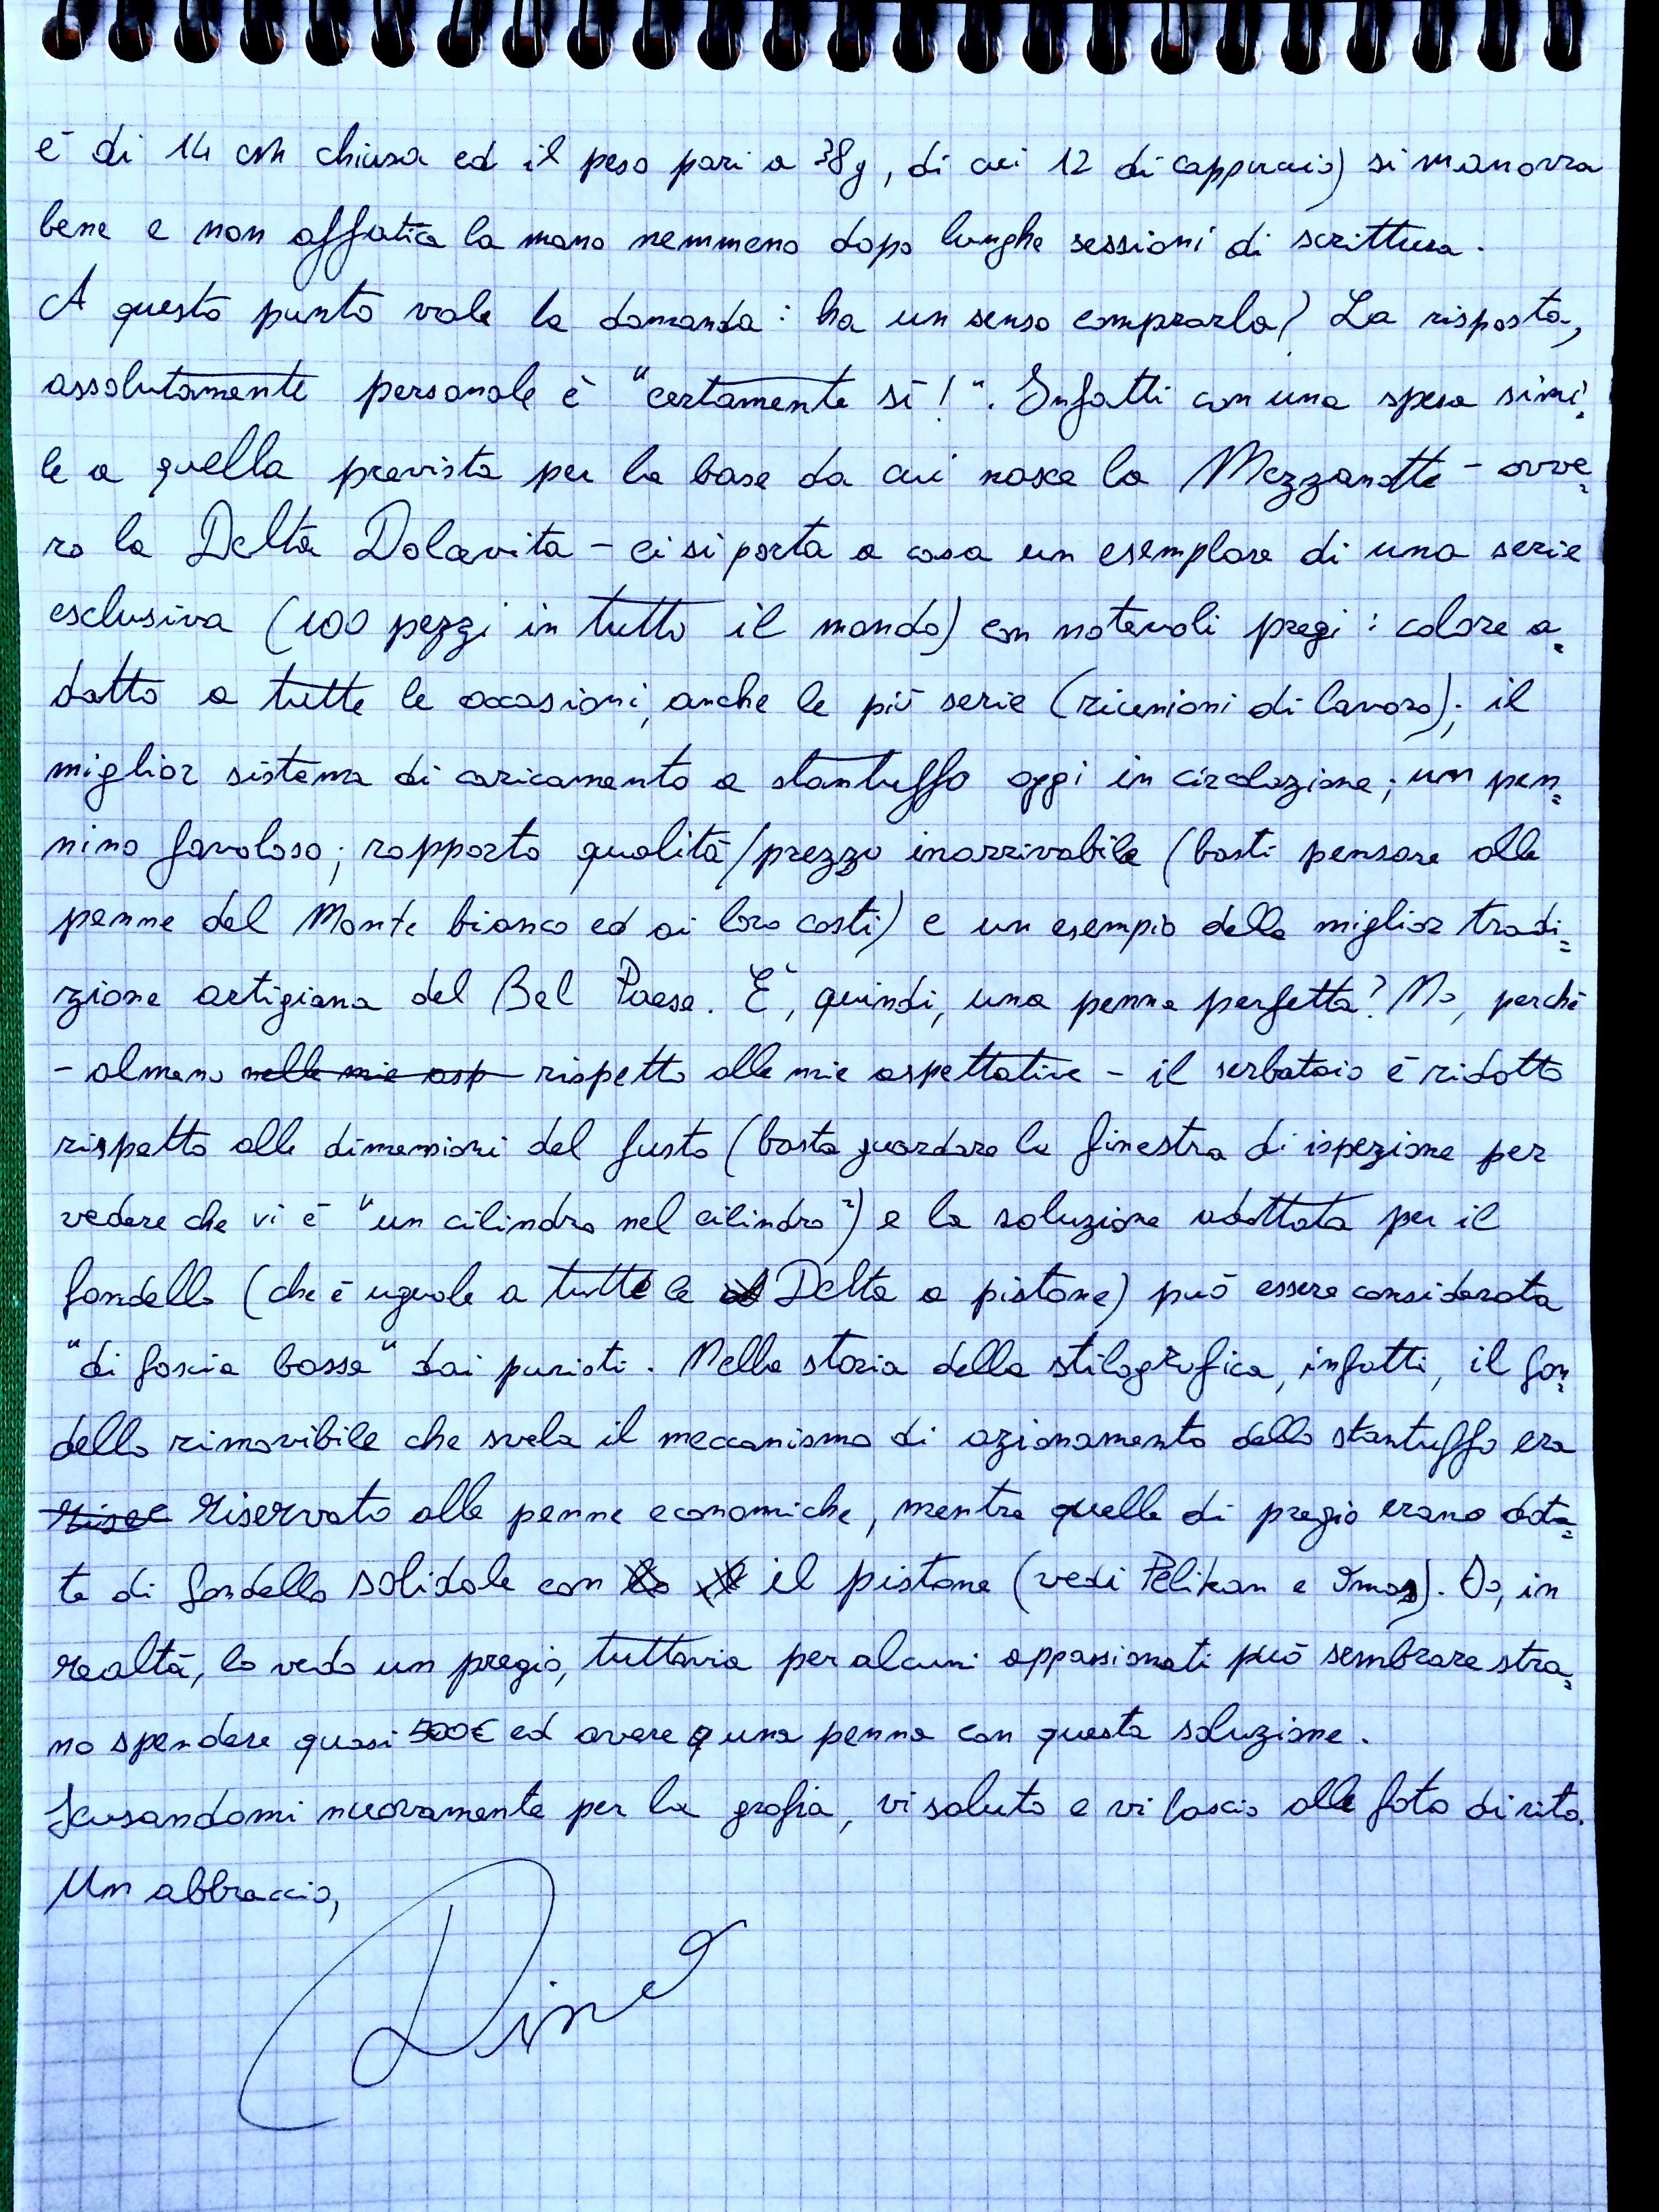 è di 14 cm chiusa ed il peso pari a 38g, di cui 12 di cappuccio) si manovra
bene e non affatica la mano nemmeno dopo lunghe sessioni di scrittura.
A questo punto vale la domanda: ha un senso comprarla? La risposta,
assolutamente personale è "certamente sì!". Infatti con una spesa simi=
le a quella prevista per la base da cui nasce la Mezzanotte - ovve=
ro la Delta Dolcevita - ci si porta a casa un esemplare di una serie
esclusiva (100 pezzi in tutto il mondo) con notevoli pregi: colore a=
datto a tutte le occasioni, anche le più serie (riunioni di lavoro); il
miglior sistema di caricamento a stantuffo oggi in circolazione; un pen=
nino favoloso; rapporto qualità/prezzo inarrivabile (basti pensare alle
penne del Monte bianco ed ai loro costi) e un esempio della miglior tradi=
zione artigiana del Bel Paese. È, quindi, una penna perfetta? No, perché
- almeno nelle mie asp rispetto alle mie aspettative - il serbatoio è ridotto
rispetto alle dimensioni del fusto (basta guardare la finestra di ispezione per
vedere che vi è "un cilindro nel cilindro") e la soluzione adottata per il
fondello (che è uguale a tutte le Delta a pistone) può essere considerata
"di fascia bassa" dai puristi. Nella storia della stilografica, infatti, il fon=
dello rimovibile che svela il meccanismo di azionamento dello stantuffo era
riservato alle penne economiche, mentre quelle di pregio erano dota=
te di fondello solidale con il pistone (vedi Pelikan e Omas). Io, in
realtà, lo vedo un pregio, tuttavia per alcuni appassionati può sembrare stra=
no spendere quasi 500€ ed avere una penna con questa soluzione.
Scusandomi nuovamente per la grafia, vi saluto e vi lascio alle foto di rito.
Un abbraccio,
Dino